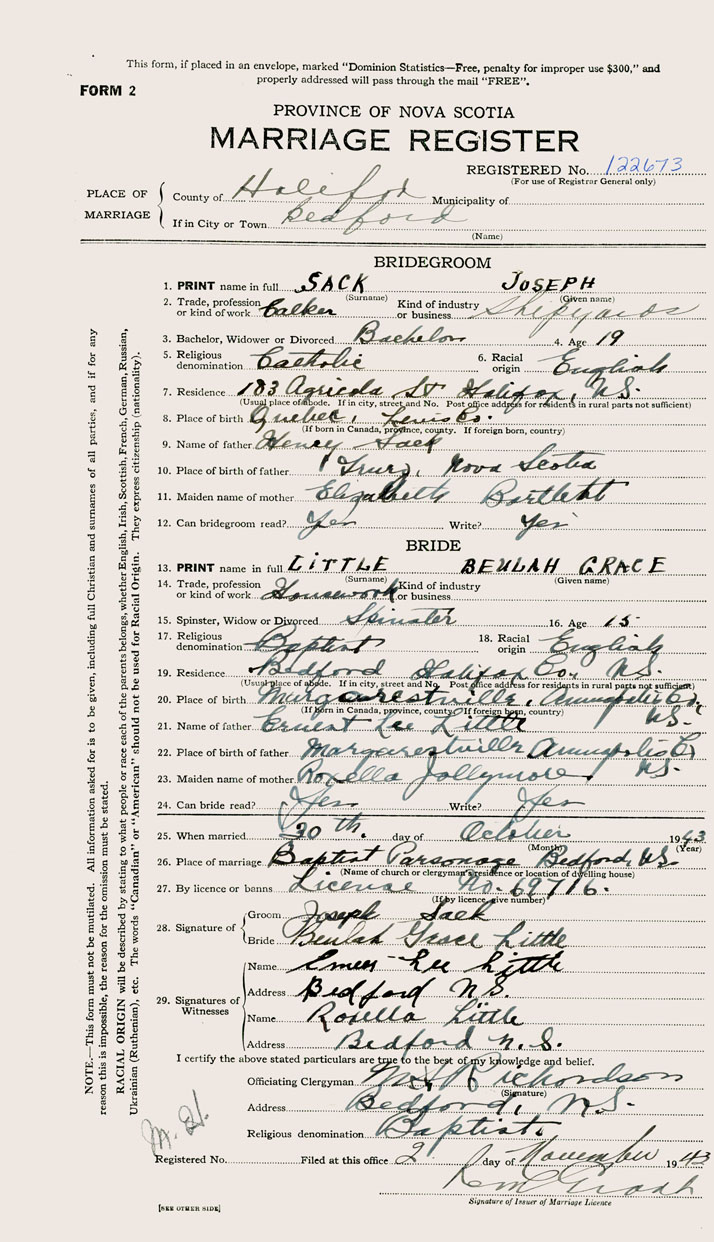 This form, if placed in an envelope, marked “Dominion Statistics—Free, penalty for improper use $300,” and
properly addressed will pass through the mail “FREE”.
FORM 2
PROVINCE OF NOVA SCOTIA
MARRIAGE REGISTER
REGISTERED No. 122673
(For use of Registrar General only)
PLACE OF MARRIAGE
County of Halifax Municipality of
If in City or Town Bedford
(Name)
BRIDEGROOM
1. PRINT name in full SACK JOSEPH
(Surname) (Given name)
2. Trade, profession or kind of work Calker Kind of industry or business Shipyards
3. Bachelor, Widower or Divorced Bachelor 4. Age 19
5. Religious denomination Catholic 6. Racial origin English
7. Residence 183 Agricola St Halifax, N.S.
(Usual place of abode. If in city, street and No. Post office address for residents in rural parts not sufficient)
8. Place of birth Quebec, Lewis Co.
(If born in Canada, province, county. If foreign born, country)
9. Name of father Henry Sack
10. Place of birth of father Truro, Nova Scotia
11. Maiden name of mother Elizabeth Bartlett
12. Can bridegroom read? Yes Write? Yes
BRIDE
13. PRINT name in full LITTLE BEULAH GRACE
(Surname) (Given name)
14. Trade, profession or kind of work Housework Kind of industry or business
15. Spinster, Widow or Divorced Spinster 16. Age 15
17. Religious denomination Baptist 18. Racial origin English
19. Residence Bedford Halifax Co., N.S.
(Usual place of abode. If in city, street and No. Post office address for residents in rural parts not sufficient)
20. Place of birth Margaretsville, Annapolis Co, N.S.
(If born in Canada, province, county. If foreign born, country)
21. Name of father Ernest Lee Little
22. Place of birth of father Margaretsville Annapolis Co N.S.
23. Maiden name of mother Roxella Jollymore
24. Can bride read? Yes Write? Yes
25. When married 30th. day of October 1943
(Month) (Year)
26. Place of marriage Baptist Parsonage Bedford, N.S.
(Name of church or clergyman's residence or location of dwelling house)
27. By licence or banns License No. 69716.
(If by licence, give number)
28. Signature of
Groom Joseph Sack
Bride Beulah Grace Little
29. Signatures of Witnesses
Name Lee Little
Address Bedford N.S.
Name Roxella Little
Address Bedford N.S.
I certify the above stated particulars are true to the best of my knowledge and belief.
Officiating Clergyman Richardson
(Signature)
Address Bedford, N.S.
Religious denomination Baptist
Registered No. Filed at this office 2 day of November 1943
Signature of Issuer of Marriage Licence
[SEE OTHER SIDE]
NOTE.—This form must not be mutilated. All information asked for is to be given, including full Christian and surnames of all parties, and if for any
reason this is impossible, the reason for the omission must be stated.
RACIAL ORIGIN will be described by stating to what people or race each of the parents belongs, whether English, Irish, Scottish, French, German, Russian,
Ukrainian (Ruthenian), etc. The words “Canadian” or “American” should not be used for Racial Origin. They express citizenship (nationality).